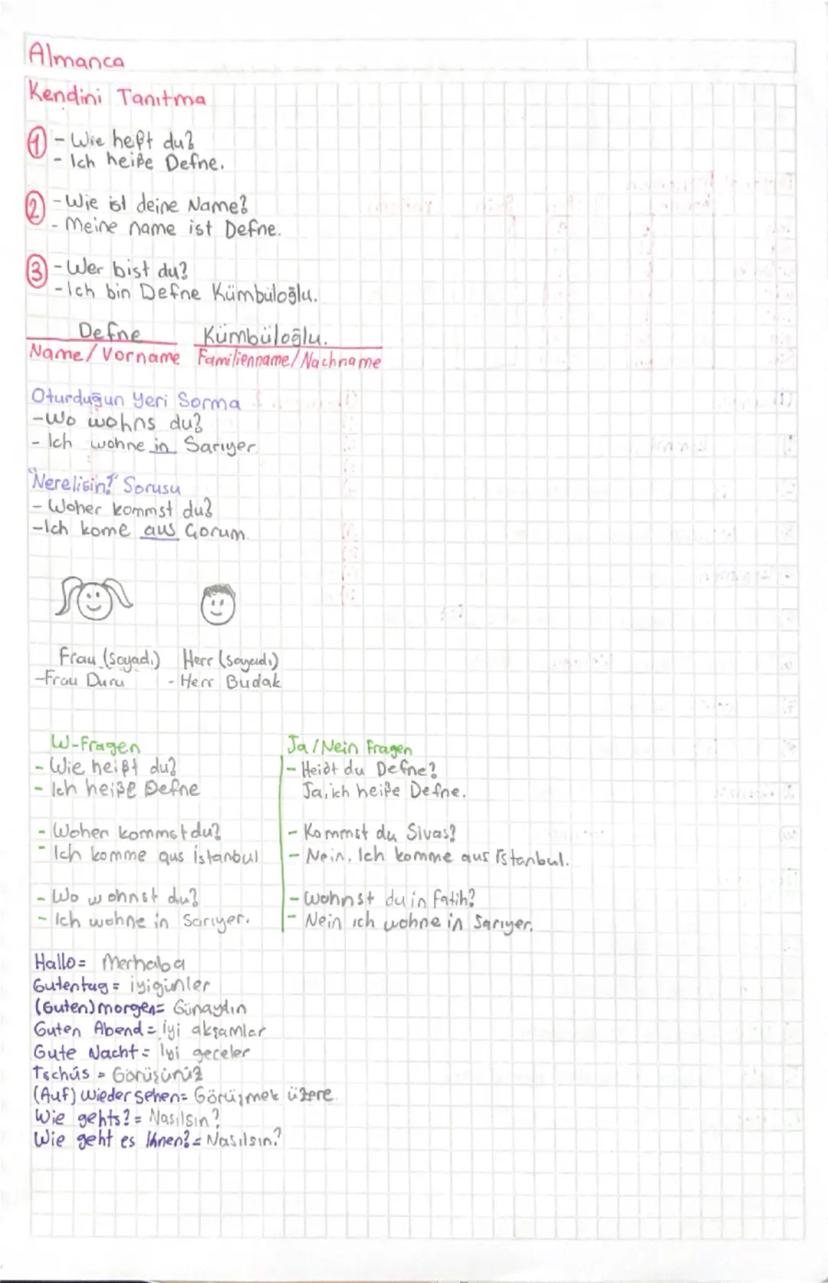 Almanca
Kendini Tanıtma
1 - Wie heßt du?
- Ich heiße Defne.
2 - Wie ist deine Name?
- Meine name ist Defne.
3 - Wer bist du?
- Ich bin Defne Kümbüloğlu.
Defne Kümbüloğlu.
Name/Vorname Familienname/Nachname
Oturduğun Yeri Sorma
- Wo wohns du?
- Ich wohne in Sarıyer
"Nerelisin?" Sorusu
- Woher kommst du?
- Ich kome aus Çorum
Frau (Soyadı) Herr (soyadı)
- Frau Duru - Herr Budak
W-Fragen
- Wie heißt du?
- Ich heiße Defne
- Woher kommst du?
- Ich komme aus İstanbul
- Wo wohnst du?
- Ich wohne in Sarıyer.
Ja/Nein Fragen
- Heißt du Defne?
Ja, ich heiße Defne.
- Kommst du Sivas?
- Nein, Ich komme aus İstanbul.
- Wohnst du in Fatih?
- Nein ich wohne in Sarıyer.
Hallo = Merhaba
Gutentag = iyigünler
(Guten) morgen = Günaydın
Guten Abend = İyi akşamlar
Gute Nacht = İyi geceler
Tschüs = Görüşürüz
(Auf) wieder sehen = Görüşmek üzere
Wie gehts? = Nasılsın?
Wie geht es Ihnen? = Nasılsın?